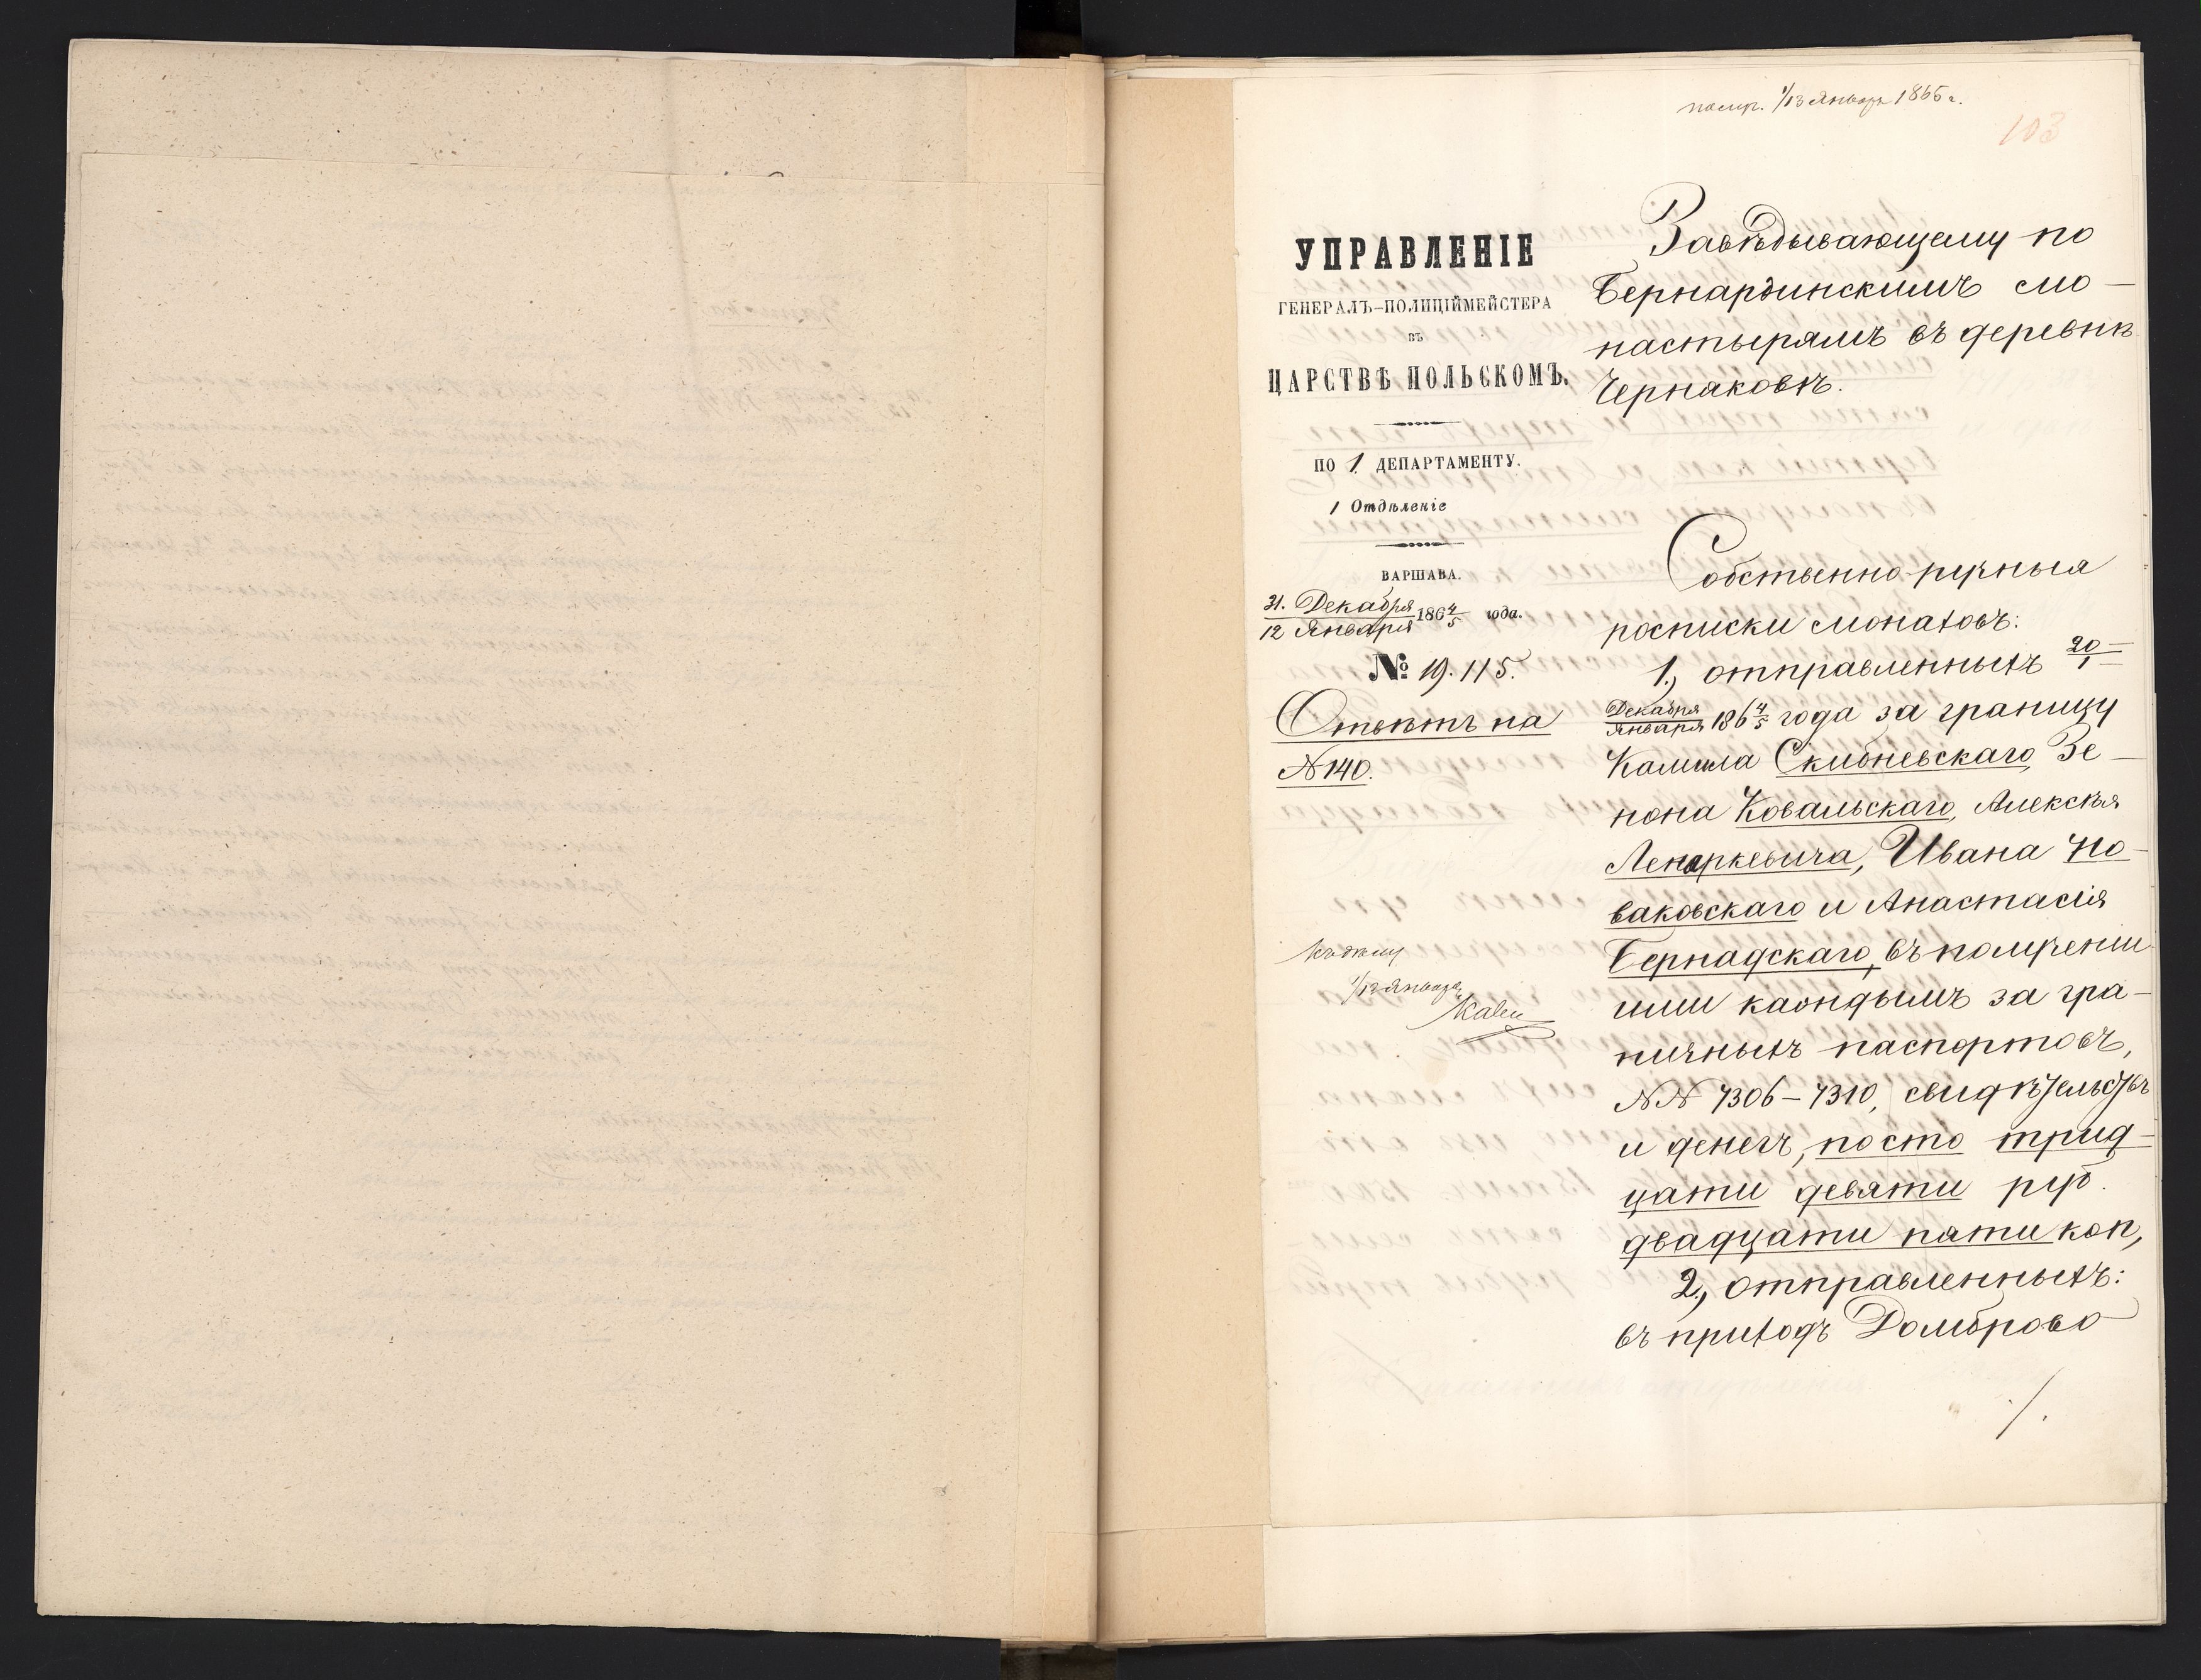 1/13 Января 1865 г.
103
УПРАВЛЕНІЕ
ГЕНЕРАЛЪ-ПОЛИЦІЙМЕЙСТЕРА
ВЪ
ЦАРСТВѢ ПОЛЬСКОМЪ.
ПО 1 ДЕПАРТАМЕНТУ.
1 Отдѣленіе
ВАРШАВА.
31. Декабря
12 Января 1864/5 года.
№ 19.115.
Отвѣтъ на
№ 140.
Къ дѣлу
1/13 Января
Завѣдывающему по
Бернардинскимъ мо-
настырямъ въ деревнѣ
Черняковѣ.
Собственно-ручныя
росписки монаховъ:
1., отправленныхъ 20/1
Декабря/Января 1864/5 года за границу
Камила Скибневскаго, Зе-
нона Ковальскаго, Алексѣя
Ленаркевича, Ивана Но-
ваковскаго и Анастасія
Бернадскаго, въ полученіи
ими каждымъ за гра-
ничныхъ паспортовъ,
№№ 7306-7310, свидѣтельствъ
и денегъ, по сто трид-
цати девяти руб.
двадцати пяти коп,
2., отправленныхъ:
въ приходъ Домброво
./.